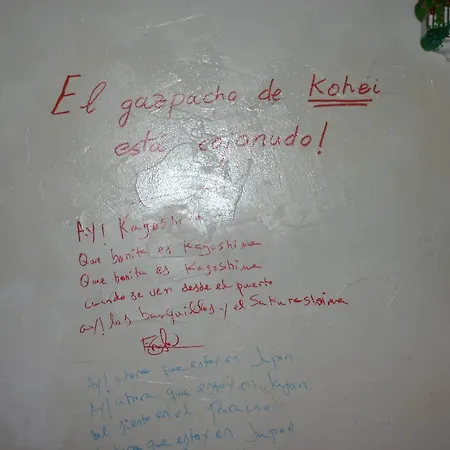 El gazpacho de Kohei
está cojonudo!
Ay! Kagoshima
Que bonita es Kagoshima
Que bonita es Kagoshima
cuando se ven desde el puerto
ay! los barquillos y el Sakurashima
Ay! ahora que estoy en Japon
Ay! ahora que estoy en Japon
me siento en el Paraiso
ahora que estoy en Japon